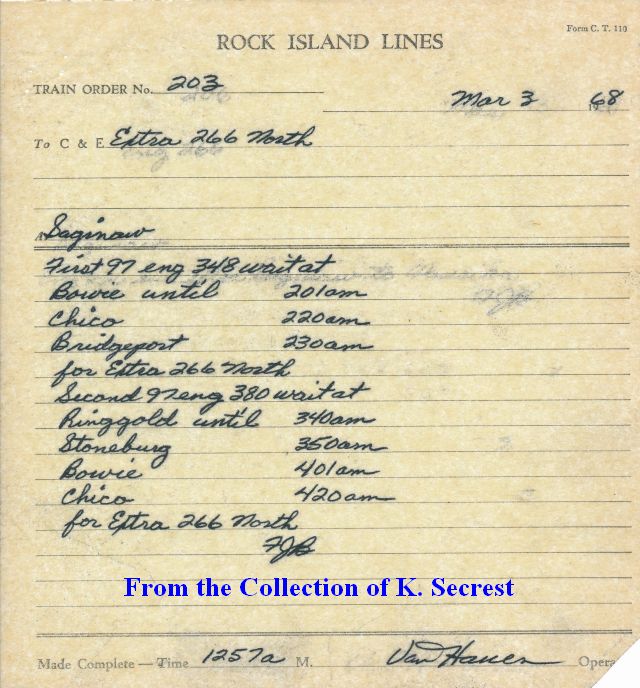 Form C. T. 110
ROCK ISLAND LINES
TRAIN ORDER No. 203
Mar 3 1968
To C & E Extra 266 North
At Saginaw
First 97 eng 348 wait at
Bowie until 201am
Chico 220am
Bridgeport 230am
for Extra 266 North
Second 97 eng 380 wait at
Ringgold until 340am
Stoneburg 350am
Bowie 401am
Chico 420am
for Extra 266 North
FJB
From the Collection of K. Secrest
Made Complete — Time 1257a M. Van Hauen Opera